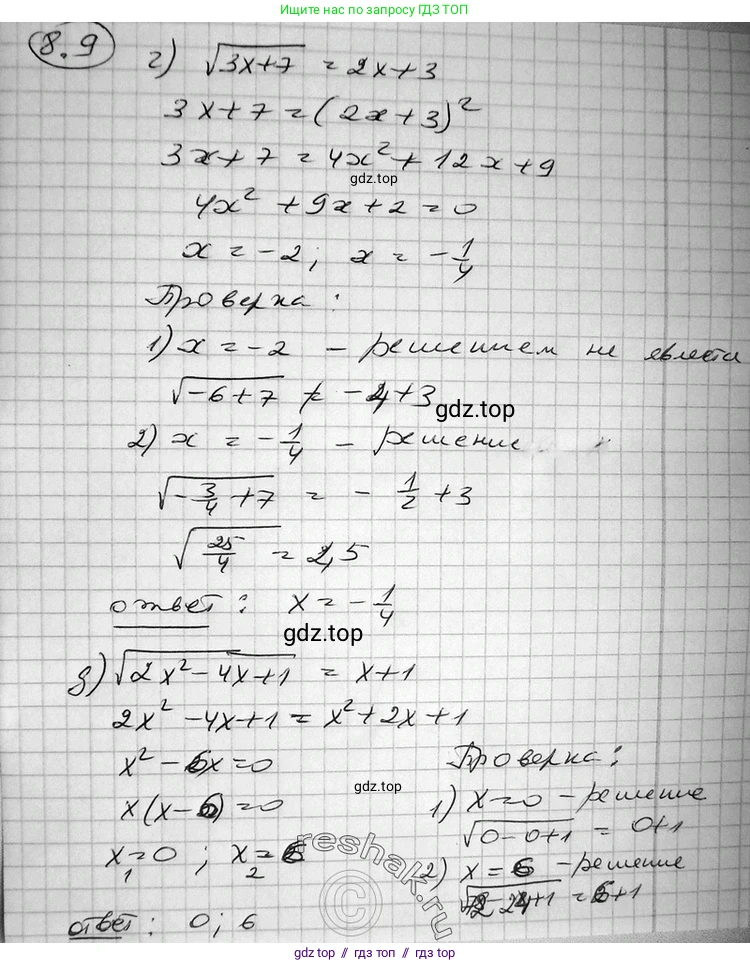 Ищите ответы по запросу ГДЗ ТОП
8.9
г) √(3x+7) = 2x+3
3x+7=(2x+3)²
3x+7=4x²+12x+9
gdz.top
4x²+9x+2=0
x=-2; x=-1/4
Проверка:
1) x=-2 - решением не явлется
√(-6+7) ≠ -4+3
gdz.top
2) x=-1/4 - решение
√(-3/4+7) = -1/2+3
√(25/4) = 2,5
ответ: x=-1/4
gdz.top
д) √(2x²-4x+1) = x+1
2x²-4x+1=x²+2x+1
x²-6x=0
x(x-6)=0
x₁=0; x₂=6
ответ: 0; 6
gdz.top
Проверка:
1) x=0 - решение
√(0-0+1) = 0+1
2) x=6 - решение
=6+1
reshak.ru
©
gdz.top // гдз.топ // gdz.top // гдз.топ